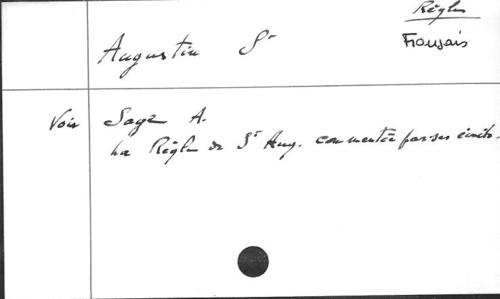 Règles
Augustin St
Français
Voir Sage A.
La Règle de St Aug. commentée par ses écrits.